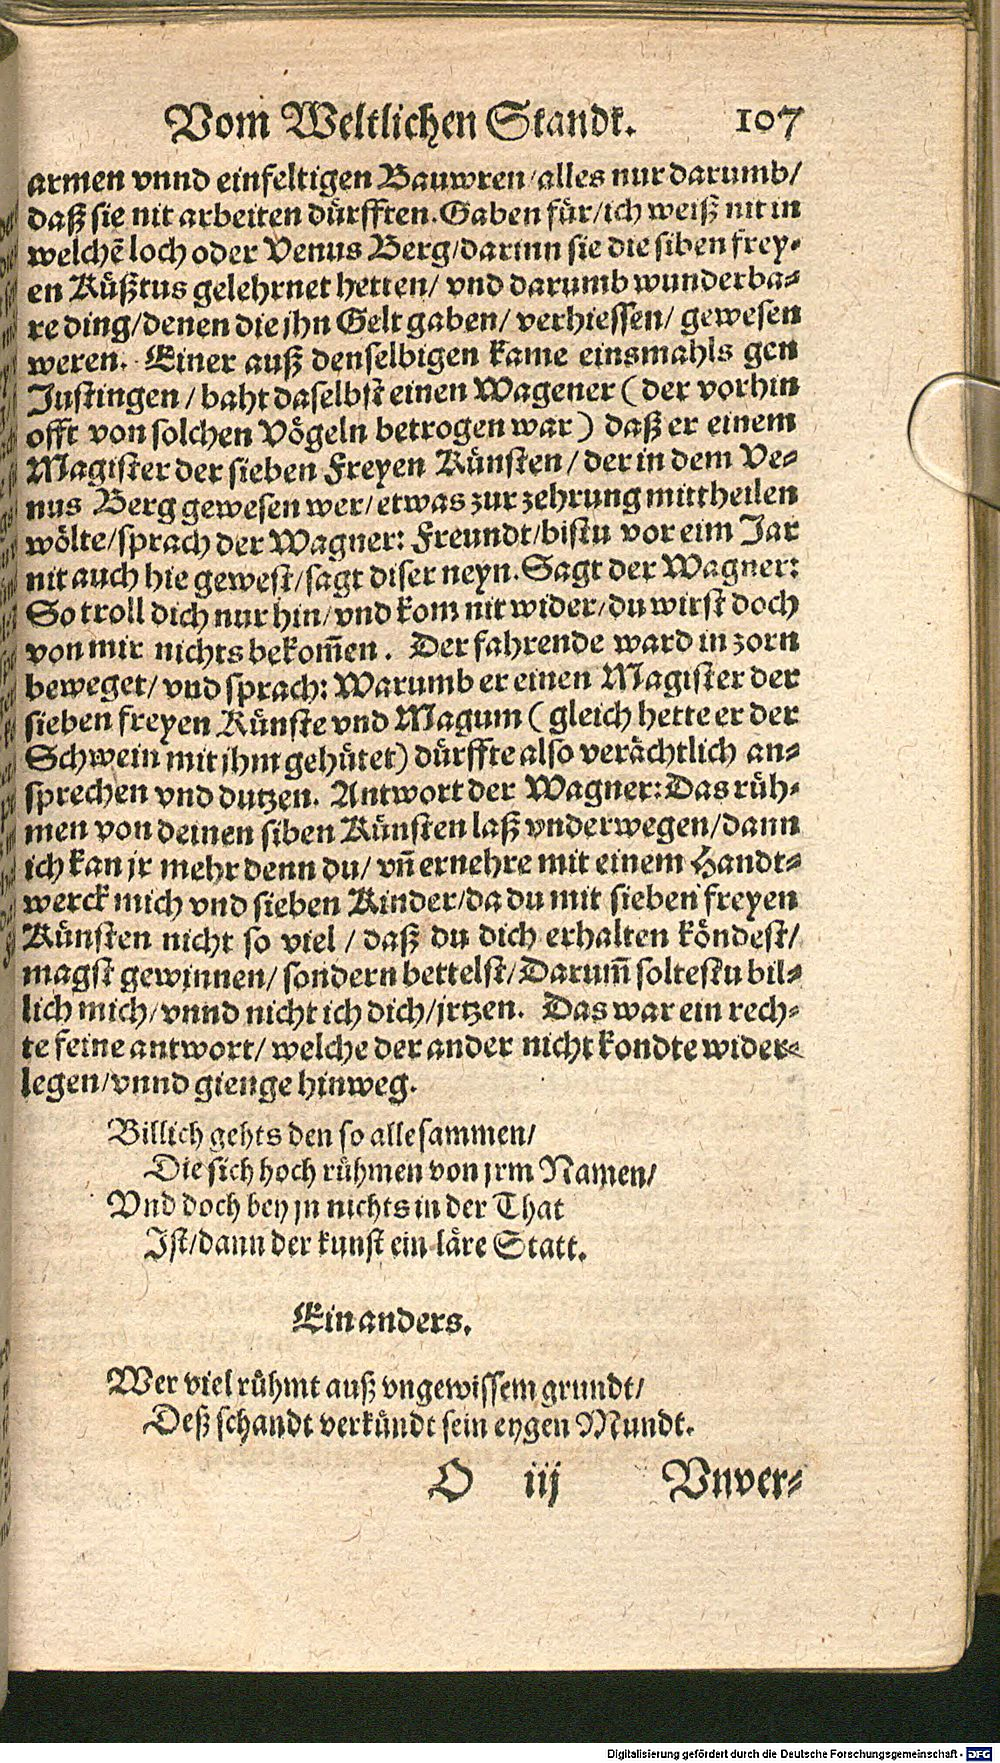 Vom Weltlichen Standt. 107
armen vnnd einfeltigen Bauwren/alles nur darumb/
daß sie nit arbeiten dürfften. Gaben für/ich weiß nit in
welchẽ loch oder Venus Berg/darinn sie die siben frey-
en Küßtus gelehrnet hetten/ vnd darumb wunderba-
re ding/denen die jhn Gelt gaben/ verhiessen/ gewesen
weren. Einer auß denselbigen kame einsmahls gen
Justingen/baht daselbst einen Wagener (der vorhin
offt von solchen Vögeln betrogen war) daß er einem
Magister der sieben Freyen Künsten/der in dem Ve-
nus Berg gewesen wer/etwas zur zehrung mittheilen
wölte/sprach der Wagner: Freundt/bistu vor eim Jar
nit auch hie gewest/sagt diser neyn. Sagt der Wagner:
So troll dich nur hin/vnd kom nit wider/du wirst doch
von mir nichts bekom̃en. Der fahrende ward in zorn
beweget/vnd sprach: Warumb er einen Magister der
sieben freyen Künste vnd Magum (gleich hette er der
Schwein mit jhm gehütet) dürffte also verächtlich an-
sprechen vnd dutzen. Antwort der Wagner: Das rüh-
men von deinen siben Künsten laß vnderwegen/dann
ich kan jr mehr denn du/ vñ ernehre mit einem Handt-
werck mich vnd sieben Kinder/da du mit sieben freyen
Künsten nicht so viel/daß du dich erhalten köndest/
magst gewinnen/sondern bettelst/Darum̃ soltestu bil-
lich mich/vnnd nicht ich dich/jrtzen. Das war ein rech-
te feine antwort/welche der ander nicht kondte wider-
legen/vnnd gienge hinweg.
Billich gehts den so alle sammen/
Die sich hoch rühmen von jrm Namen/
Vnd doch bey jn nichts in der That
Ist/dann der kunst ein läre Statt.
Ein anders.
Wer viel rühmt auß vngewissem grundt/
Deß schandt verkündt sein eygen Mundt.
O iij Vnver-
Digitalisierung gefördert durch die Deutsche Forschungsgemeinschaft - DFG